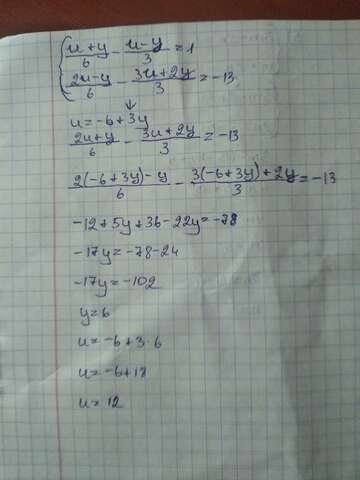 { (u+y)/6 - (u-y)/3 = 1
(2u-y)/6 - (3u+2y)/3 = -13
↓
u = -6+3y
(2u+y)/6 - (3u+2y)/3 = -13
(2(-6+3y)-y)/6 - (3(-6+3y)+2y)/3 = -13
-12+5y+36-22y=-78
-17y=-78-24
-17y=-102
y=6
u=-6+3·6
u=-6+18
u=12